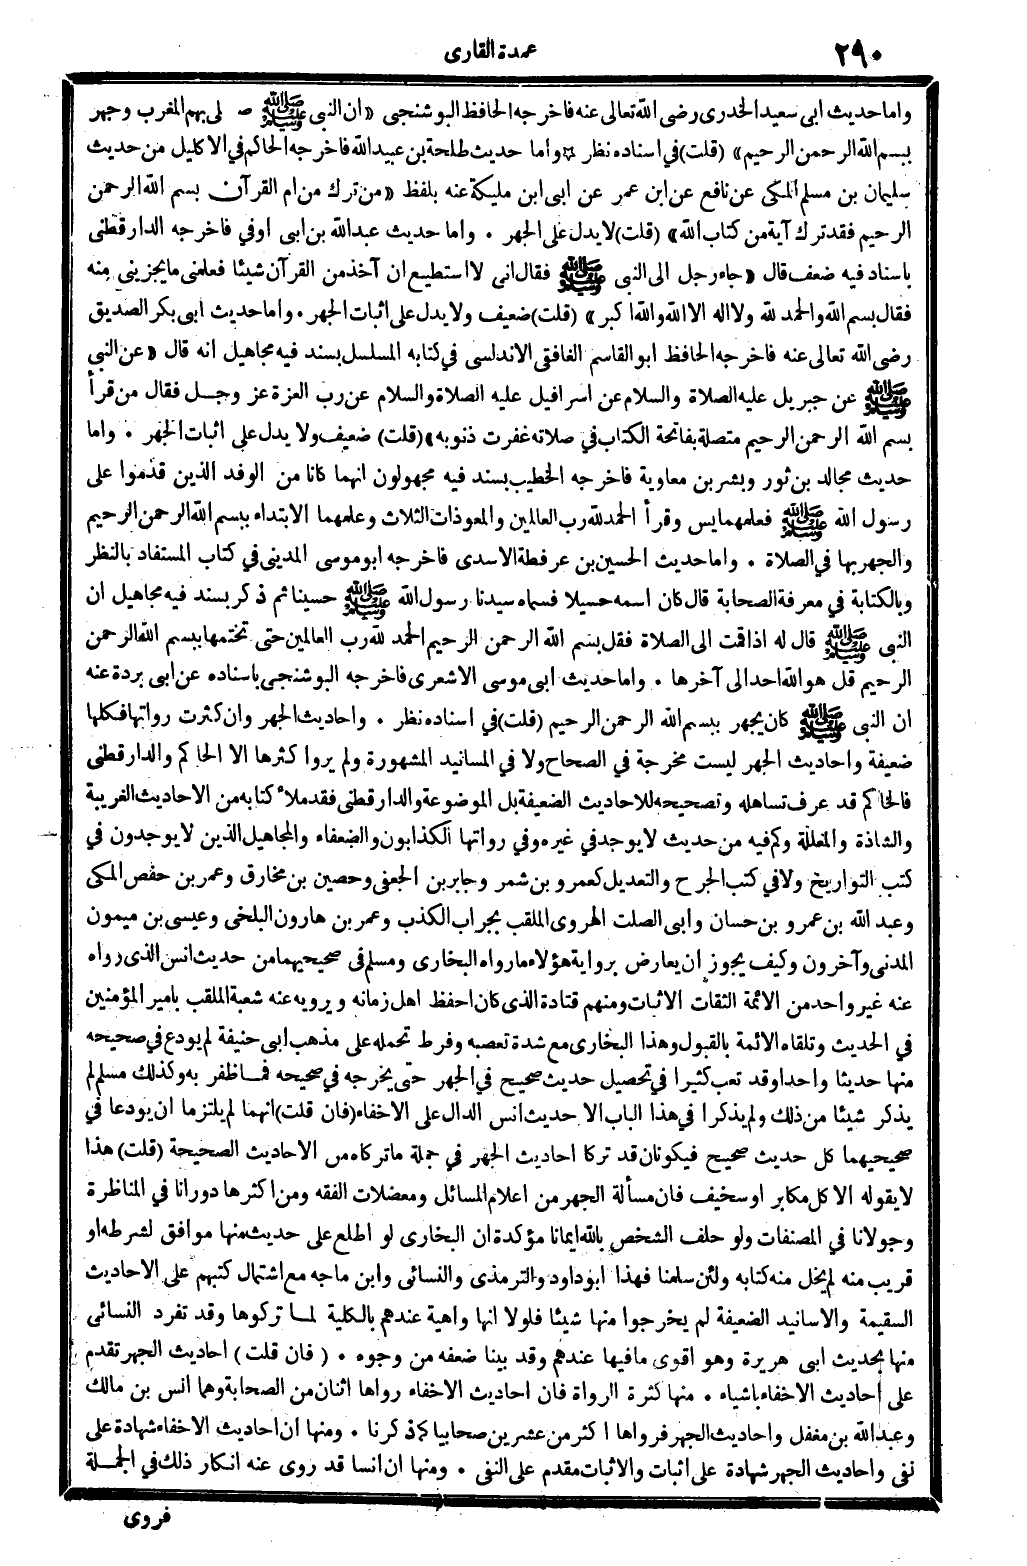 ٢٩٠
عمدة القارى
واما حديث ابى سعيد الخدرى رضى الله تعالى عنه فاخرجه الحافظ البوشنجى «ان النبى ﷺ صلى بهم المغرب وجهر
ببسم الله الرحمن الرحيم» (قلت) فى اسناده نظر * وأما حديث طلحة بن عبيد الله فاخرجه الحاكم فى الاكليل من حديث
سليمان بن مسلم المكى عن نافع عن ابن عمر عن ابى ابن مليكة عنه بلفظ «من ترك من ام القرآن بسم الله الرحمن
الرحيم فقد ترك آية من كتاب الله» (قلت) لا يدل على الجهر . واما حديث عبد الله بن ابى اوفي فاخرجه الدارقطنى
باسناد فيه ضعف قال «جاء رجل الى النبى ﷺ فقال انى لا استطيع ان آخذ من القرآن شيئا فعلمنى ما يجزينى منه
فقال بسم الله والحمد لله ولا اله الا الله والله أكبر» (قلت) ضعيف ولا يدل على اثبات الجهر . واما حديث ابى بكر الصديق
رضى الله تعالى عنه فاخرجه الحافظ ابو القاسم الغافقى الاندلسى في كتابه المسلسل بسند فيه مجاهيل انه قال «عن النبى
ﷺ عن جبريل عليه الصلاة والسلام عن اسرافيل عليه الصلاة والسلام عن رب العزة عز وجل فقال من قرأ
بسم الله الرحمن الرحيم متصلة بفاتحة الكتاب في صلاته غفرت ذنوبه» (قلت) ضعيف ولا يدل على اثبات الجهر . واما
حديث مجالد بن ثور وبشر بن معاوية فاخرجه الخطيب بسند فيه مجهولون انهما كانا من الوفد الذين قدموا على
رسول الله ﷺ فعلمهما يس وقرأ الحمد لله رب العالمين والمعوذات الثلاث وعلمهما الابتداء ببسم الله الرحمن الرحيم
والجهر بها في الصلاة . واما حديث الحسين بن عرفطة الاسدى فاخرجه ابو موسى المدينى في كتاب المستفاد بالنظر
وبالكتابة في معرفة الصحابة قال كان اسمه حسيلا فسماه سيدنا رسول الله ﷺ حسينا ثم ذكر بسند فيه مجاهيل ان
النبى ﷺ قال له اذا قمت الى الصلاة فقل بسم الله الرحمن الرحيم الحمد لله رب العالمين حتى تختمها ببسم الله الرحمن
الرحيم قل هو الله احد الى آخرها . واما حديث ابى موسى الاشعرى فاخرجه البوشنجى باسناده عن ابى بردة عنه
ان النبى ﷺ كان يجهر ببسم الله الرحمن الرحيم (قلت) في اسناده نظر . واحاديث الجهر وان كثرت رواتها فكلها
ضعيفة واحاديث الجهر ليست مخرجة في الصحاح ولا في المسانيد المشهورة ولم يرو اكثرها الا الحاكم والدارقطنى
فالحاكم قد عرف تساهله وتصحيحه للاحاديث الضعيفة بل الموضوعة والدارقطنى فقد ملأ كتابه من الاحاديث الغريبة
والشاذة والمعللة وكم فيه من حديث لا يوجد في غيره وفي رواتها الكذابون والضعفاء والمجاهيل الذين لا يوجدون في
كتب التواريخ ولا في كتب الجرح والتعديل كعمرو بن شمر وجابر بن الجعفى وحصين بن مخارق وعمر بن حفص المكى
وعبد الله بن عمرو بن حسان وابى الصلت الهروى الملقب بجراب الكذب وعمر بن هارون البلخى وعيسى بن ميمون
المدنى وآخرون وكيف يجوز أن يعارض برواية هؤلاء ما رواه البخارى ومسلم فى صحيحيهما من حديث انس الذى رواه
عنه غير واحد من الائمة الثقات الاثبات ومنهم قتادة الذى كان احفظ اهل زمانه ويرويه عنه شعبة الملقب بامير المؤمنين
في الحديث وتلقاه الائمة بالقبول وهذا البخارى مع شدة تعصبه وفرط تحمله على مذهب ابى حنيفة لم يودع في صحيحه
منها حديثا واحدا وقد تعب كثيرا في تحصيل حديث صحيح في الجهر حتى يخرجه في صحيحه فما ظفر به وكذلك مسلم لم
يذكر شيئا من ذلك ولم يذكرا في هذا الباب الا حديث انس الدال على الاخفاء (فان قلت) انهما لم يلتزما ان يودعا في
صحيحيهما كل حديث صحيح فيكونان قد تركا احاديث الجهر في جملة ما تركاه من الاحاديث الصحيحة (قلت) هذا
لا يقوله الا كل مكابر او سخيف فان مسألة الجهر من اعلام المسائل ومعضلات الفقه ومن اكثرها دورانا في المناظرة
وجولانا في المصنفات ولو حلف الشخص بالله ايمانا مؤكدة ان البخارى لو اطلع على حديث منها موافق لشرطه او
قريب منه لم يخل منه كتابه ولئن سلمنا فهذا ابو داود والترمذى والنسائى وابن ماجه مع اشتمال كتبهم على الاحاديث
السقيمة والاسانيد الضعيفة لم يخرجوا منها شيئا فلولا انها واهية عندهم بالكلية لما تركوها وقد تفرد النسائى
منها بحديث ابى هريرة وهو اقوى ما فيها عندهم وقد بينا ضعفه من وجوه . (فان قلت) احاديث الجهر تقدم
على أحاديث الاخفاء باشياء . منها كثرة الرواة فان احاديث الاخفاء رواها اثنان من الصحابة وهما انس بن مالك
وعبد الله بن مغفل واحاديث الجهر فرواها اكثر من عشرين صحابيا كما ذكرنا . ومنها ان احاديث الاخفاء شهادة على
نفى واحاديث الجهر شهادة على اثبات والاثبات مقدم على النفى . ومنها ان انسا قد روى عنه انكار ذلك في الجملة
فروى